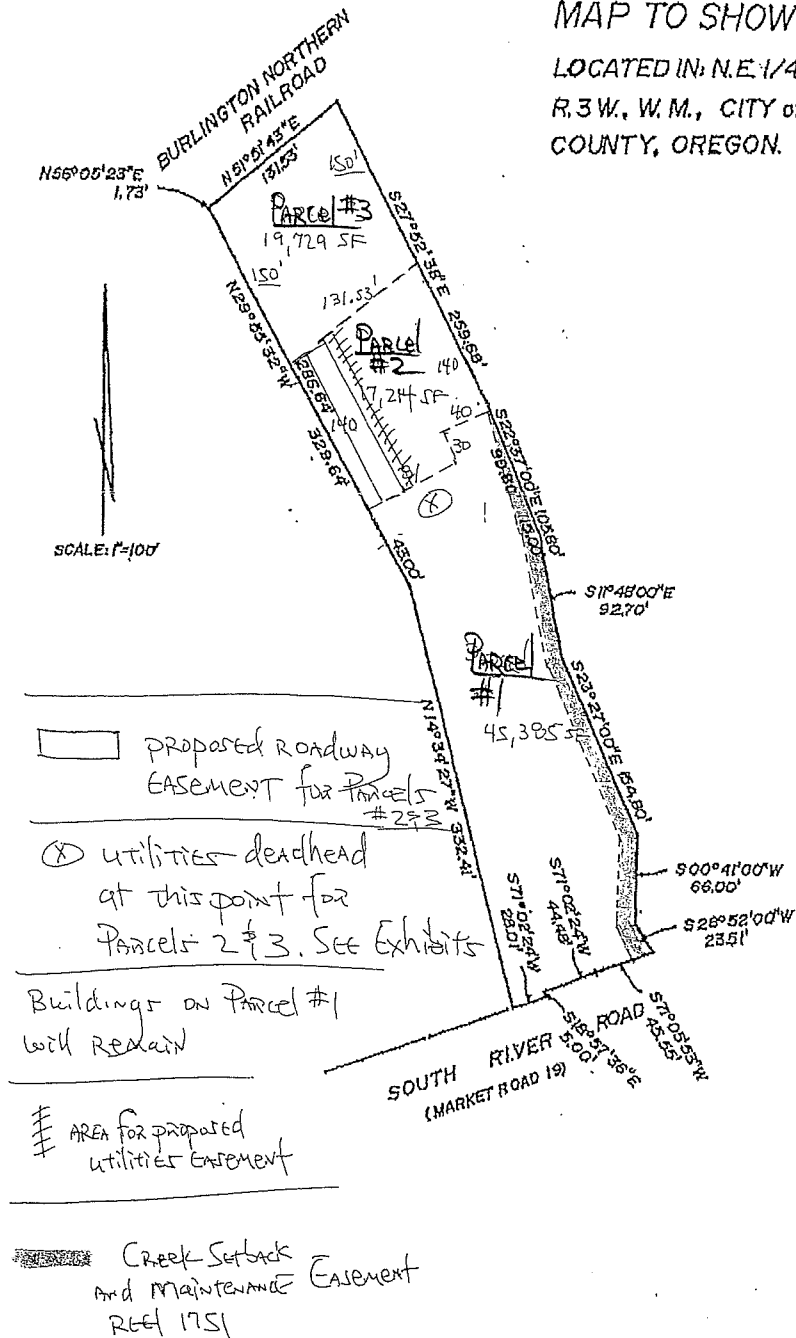 MAP TO SHOW
LOCATED IN: N.E. 1/4
R.3 W., W.M., CITY o
COUNTY, OREGON.
BURLINGTON NORTHERN
RAILROAD
N56°05'23"E
1.73'
N51°51'43"E
131.53'
150'
PARCEL #3
19,729 SF
150'
S27°52'38"E 259.68'
131.53'
N29°55'32"W
329.64'
286.64'
140
PARCEL
#2
140
17,214 SF
40
30
X
43.00'
S22°37'00"E 105.80'
99.80'
115.00'
SCALE: 1"=100'
S11°48'00"E
92.70'
PARCEL
#1
45,385 SF
S23°27'00"E 154.80'
N14°34'27"W 332.41'
S00°41'00"W
66.00'
S26°52'00"W
23.51'
S71°02'24"W
28.01'
S71°02'24"W
44.48'
S18°57'36"E
5.00'
S71°05'53"W
45.55'
SOUTH RIVER ROAD
(MARKET ROAD 19)
PROPOSED ROADWAY
EASEMENT for PARCELS
#2 & 3
X utilities deadhead
at this point for
Parcels 2 & 3. See Exhibits
Buildings on Parcel #1
will Remain
AREA for proposed
utilities Easement
Creek Setback
And Maintenance Easement
REEL 1751